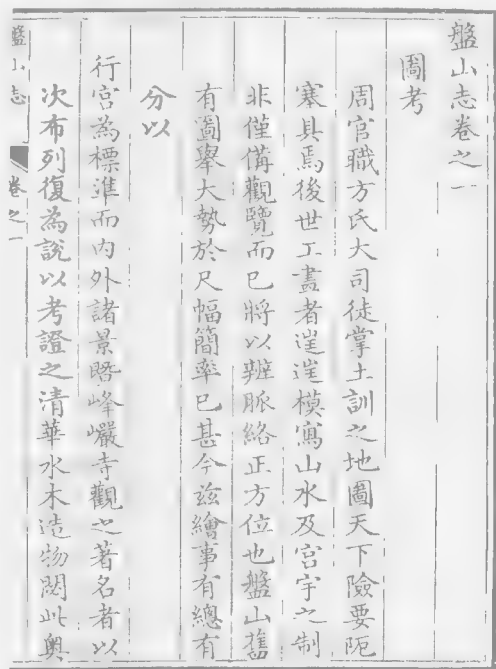 盤山志卷之一
圖考
周官職方氏大司徒掌土訓之地圖天下險要阨
塞具焉後世工畫者遑遑模寫山水及宮宇之制
非僅備觀覽而已將以辨脈絡正方位也盤山舊
有圖舉大勢於尺幅簡率已甚今兹繪事有總有
分以
行宫為標準而内外諸景曁峰巖寺觀之著名者以
次布列復為說以考證之清華水木造物閟此奥
盤山志
卷之一